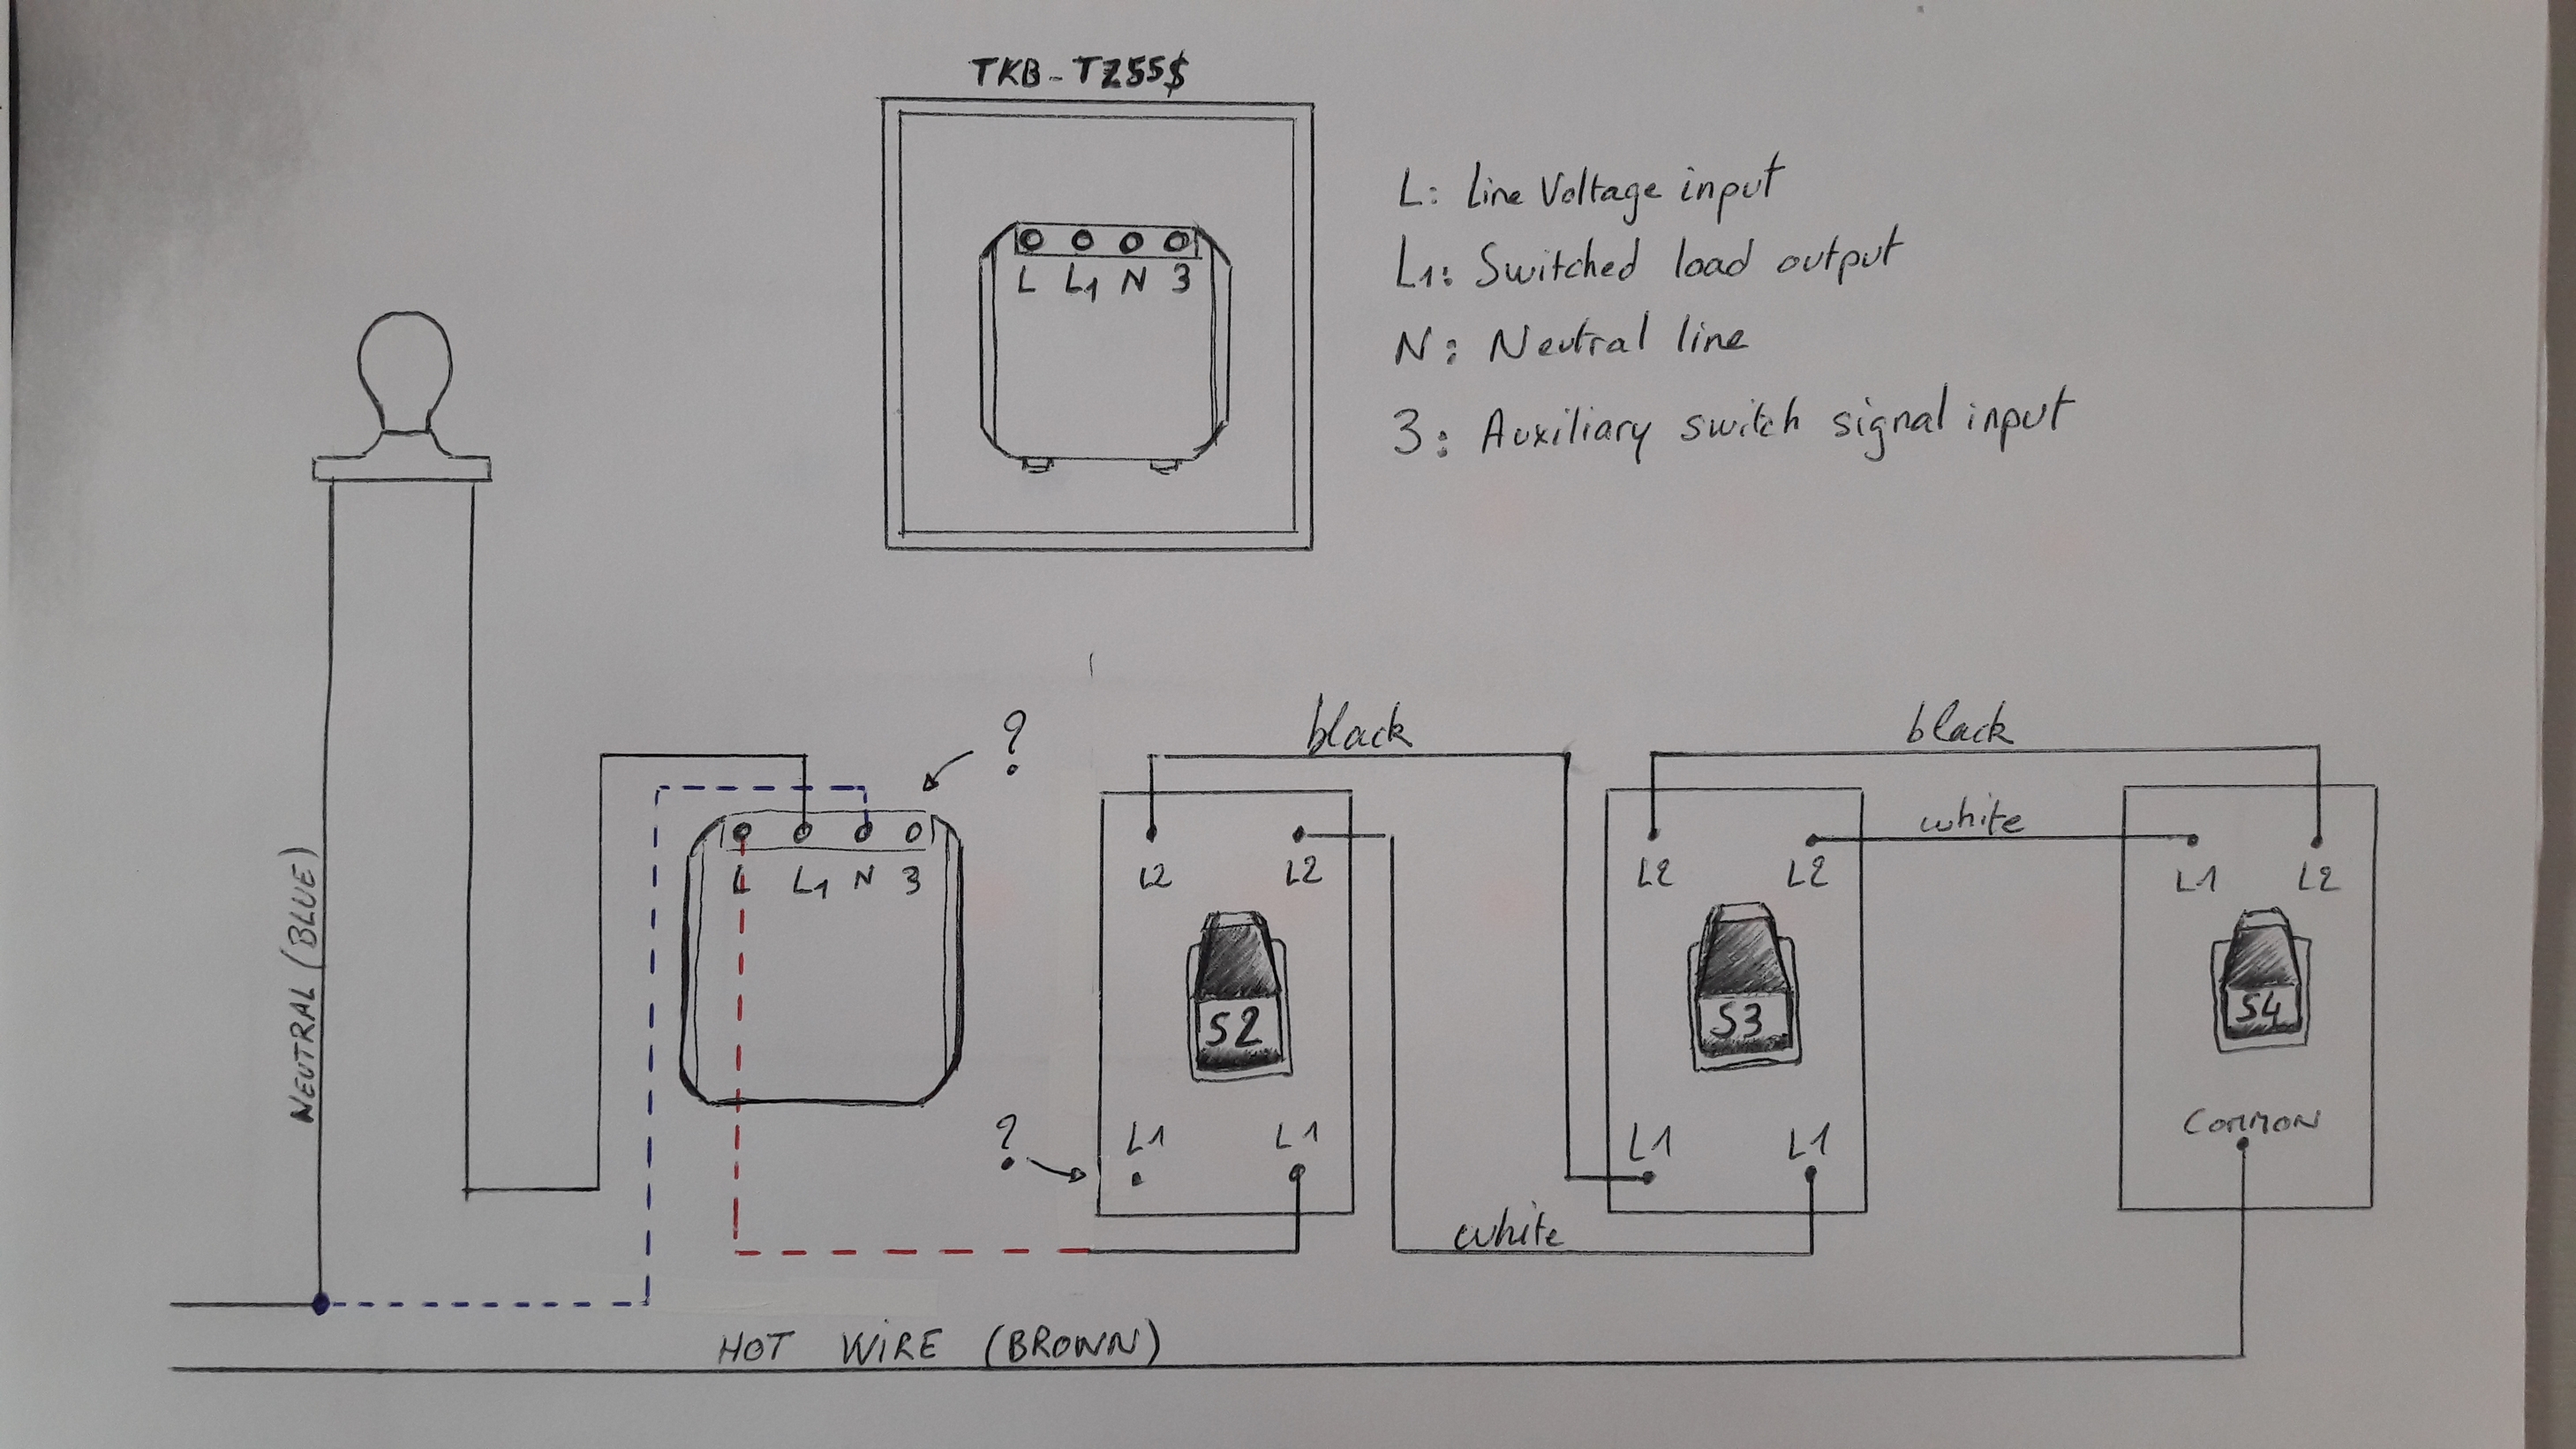 TKB-TZ55$
L L1 N 3
L: Line Voltage input
L1: Switched load output
N: Neutral line
3: Auxiliary switch signal input
?
black
black
white
L L1 N 3
L2 L2
L2 L2
L1 L2
NEUTRAL (BLUE)
S2
S3
S4
?
L1 L1
L1 L1
COMMON
white
HOT WIRE (BROWN)